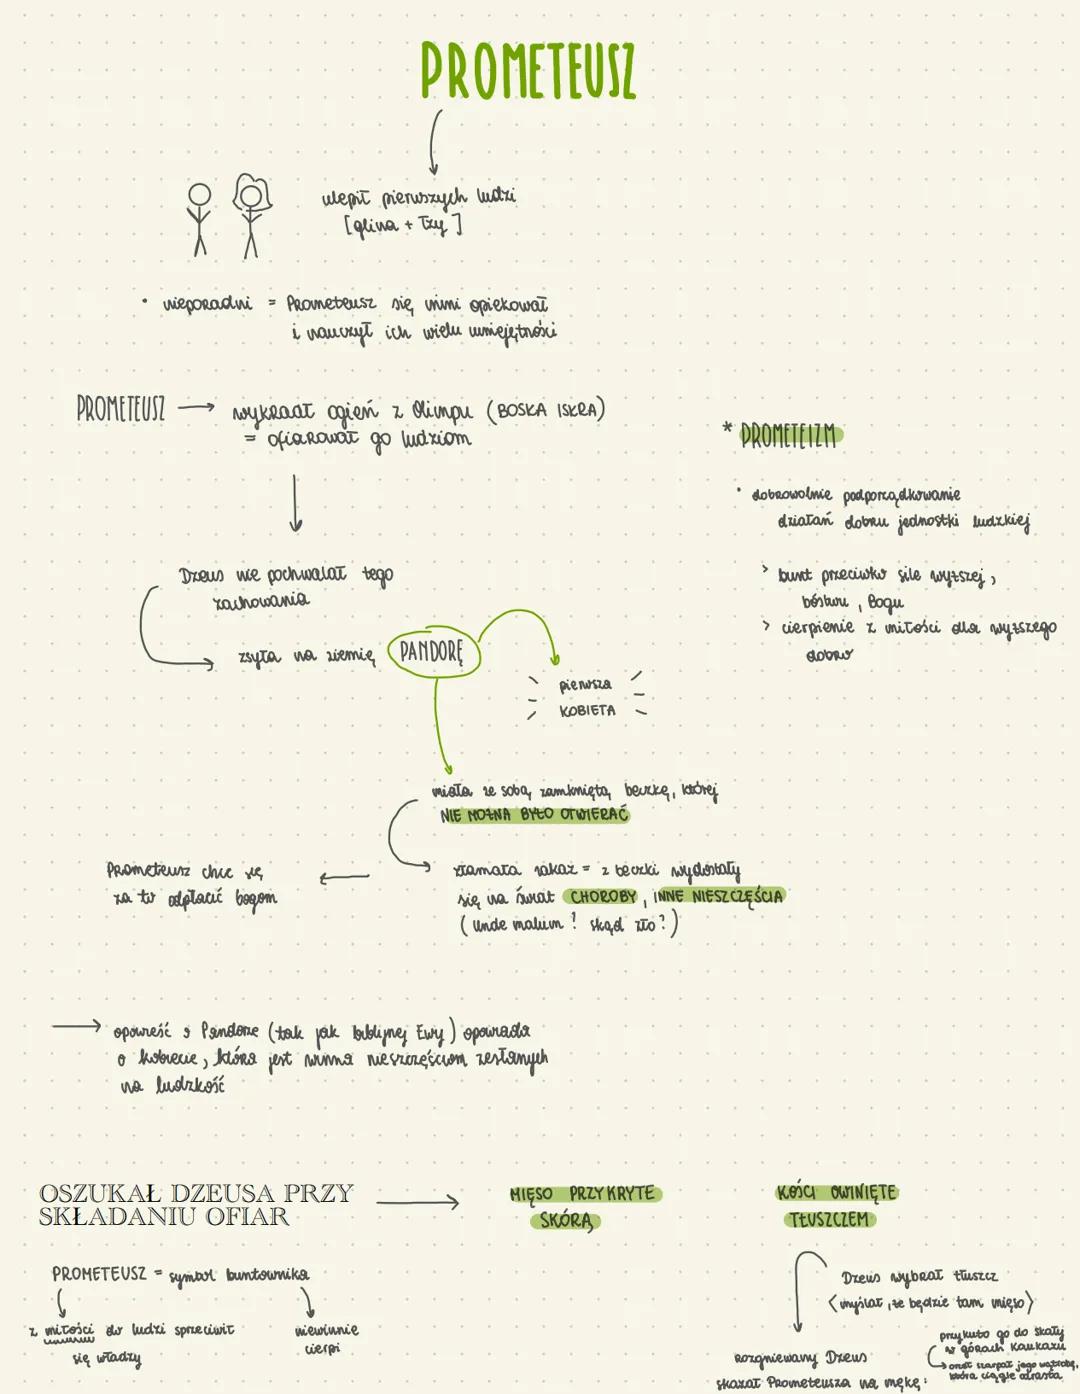 PROMETEUSZ
ulepił pierwszych ludzi
[glina + łzy]
• nieporadni = Prometeusz się nimi opiekował
i nauczył ich wielu umiejętności
PROMETEUSZ → wykradł ogień z Olimpu (BOSKA ISKRA)
= ofiarował go ludziom
* PROMETEIZM
• dobrowolnie podporządkowanie
działań dobru jednostki ludzkiej
> bunt przeciwko sile wyższej,
bóstwu, Bogu
> cierpienie z miłości dla wyższego
dobra
Dzeus nie pochwalał tego
zachowania
zsyła na ziemię PANDORĘ
pierwsza
KOBIETA
miała ze sobą zamkniętą beczkę, której
NIE MOŻNA BYŁO OTWIERAĆ
Prometeusz chce się
za to odpłacić bogom
złamała zakaz = z beczki wydostały
się na świat CHOROBY, INNE NIESZCZĘŚCIA
(unde malum? skąd zło?)
→ opowieść o Pandorze (tak jak biblijnej Ewy) opowiada
o kobiecie, która jest winna nieszczęściom zesłanych
na ludzkość
OSZUKAŁ DZEUSA PRZY
SKŁADANIU OFIAR
MIĘSO PRZYKRYTE
SKÓRĄ
KOŚCI OWINIĘTE
TŁUSZCZEM
PROMETEUSZ = symbol buntownika
z miłości do ludzi sprzeciwił
się władzy
niewinnie
cierpi
Dzeus wybrał tłuszcz
(myślał, że będzie tam mięso)
rozgniewany Dzeus
skazał Prometeusza na mękę:
przykuto go do skały
w górach Kaukazu
→ orzeł szarpał jego wątrobę,
która ciągle odrasta